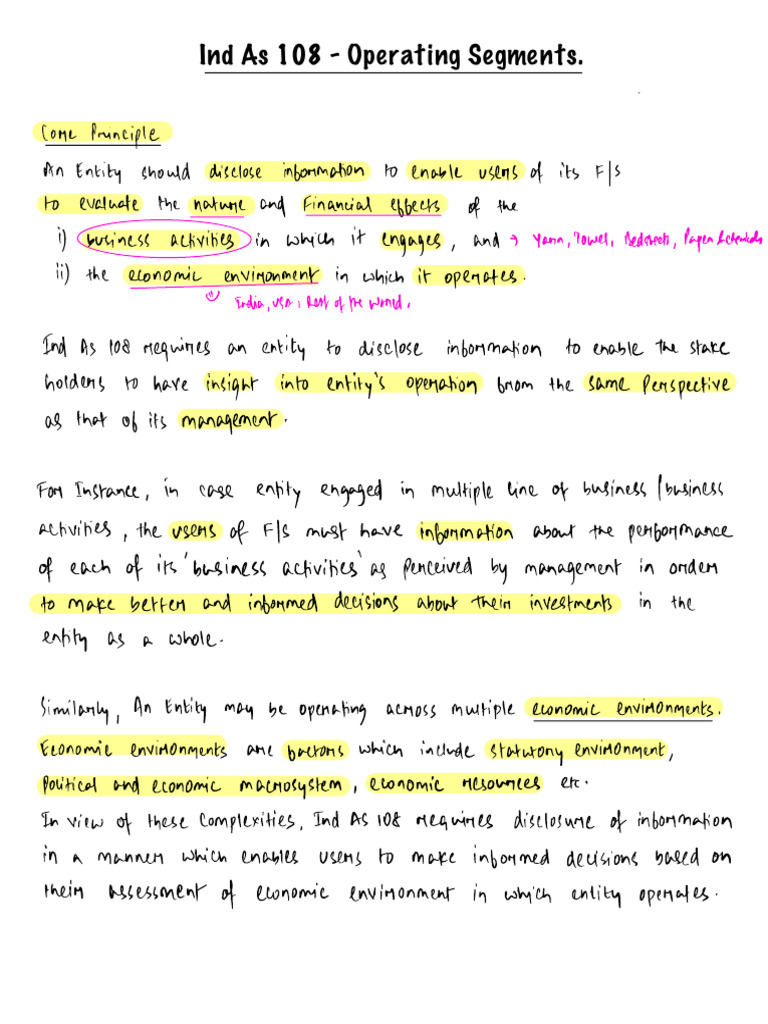 Ind As 108 - Operating Segments.
Core Principle
An Entity should disclose information to enable users of its F/S
to evaluate the nature and Financial effects of the
i) business activities in which it engages, and → Yarn, Towel, Bedsheets, Paper & chemicals
ii) the economic environment in which it operates.
India, USA, Rest of the World.
Ind As 108 requires an entity to disclose information to enable the stake
holders to have insight into entity's operation from the same Perspective
as that of its management.
For Instance, in case entity engaged in multiple line of business / business
activities, the users of F/S must have information about the performance
of each of its 'business activities' as perceived by management in order
to make better and informed decisions about their investments in the
entity as a whole.
Similarly, An Entity may be operating across multiple economic environments.
Economic environments are factors which include statutory environment,
Political and economic macrosystem, economic resources etc.
In view of these Complexities, Ind As 108 requires disclosure of information
in a manner which enables users to make informed decisions based on
their assessment of economic environment in which entity operates.